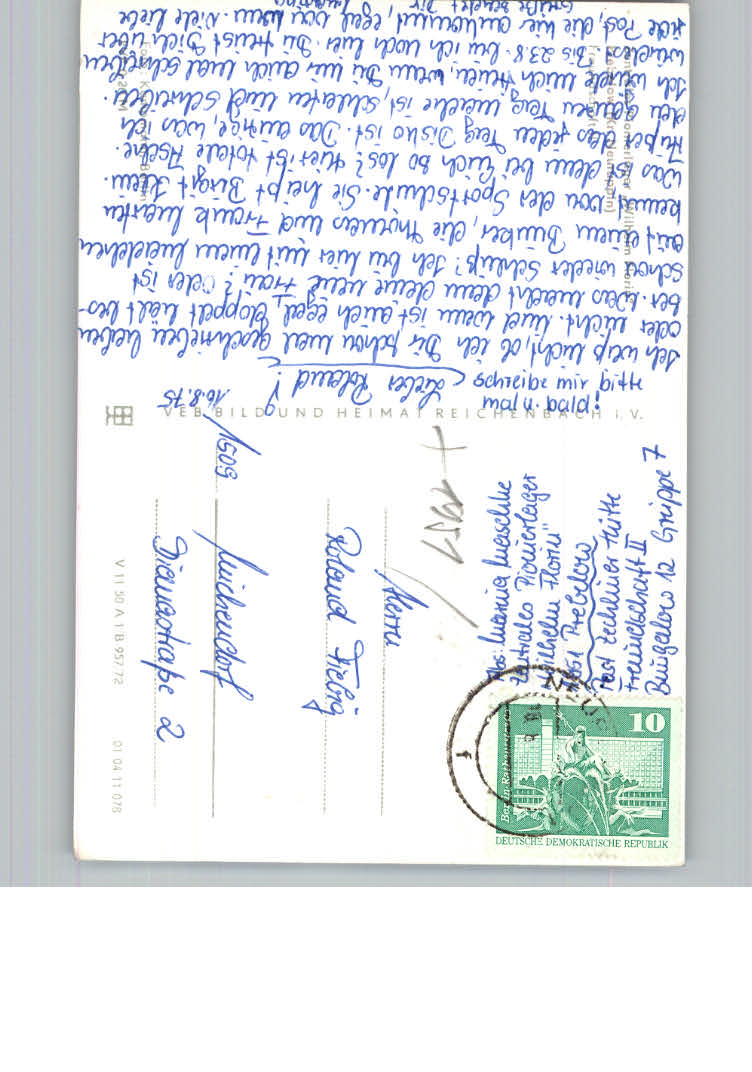 Lieber Roland! 16.8.75
schreibe mir bitte
mal 'n. paar!
Ich weiß nicht, ob ich Dir schon mal geschrieben habe
oder nicht. Und wenn ist auch egal, doppelt hält bes-
ser. Was macht denn deine neue Frau? Oder ist
schon wieder Schluß? Ich bin hier mit einem Mädchen
aus einem Bunker, die Thomas und Frank Martin
kennt von der Sportschule. Sie heißt Birgit Klem.
Was ist denn bei Euch so los? Hier ist totale Asche.
Außer das jeden Tag Disko ist. Das einzige, was ich
den ganzen Tag mache ist, schlafen und schreiben.
Ich würde mich freuen, wenn Du mir auch mal schreiben
würdest. Bis 23.8. bin ich noch hier. Du freust Dich über
jede Post, die hier ankommt, egal von wem. Viele liebe
Grüße sendet Dir
VEB BILD UND HEIMAT REICHENBACH i. V.
Herrn
Roland Fiebig
1509 Michendorf
Dianastraße 2
+ 1951
Abs: Maschke
Zentrales Pionierlager
"Wilhelm Florin"
Prebelow
Post Zechliner Hütte
Freundschaft II
Bungalow 12 Gruppe 7
10
Berlin-Rathaus
DEUTSCHE DEMOKRATISCHE REPUBLIK
V 11 50 A 1/B 957/72 01 04 11 078